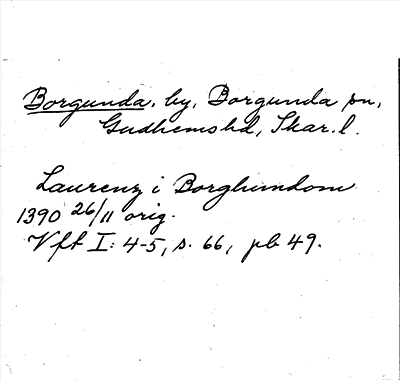 Borgunda, by, Borgunda sn,
Gudhems hd, Skar. l.
Laurenz i Borghundom
1390 26/11 orig.
Vft I: 4-5, s. 66, pb 49.